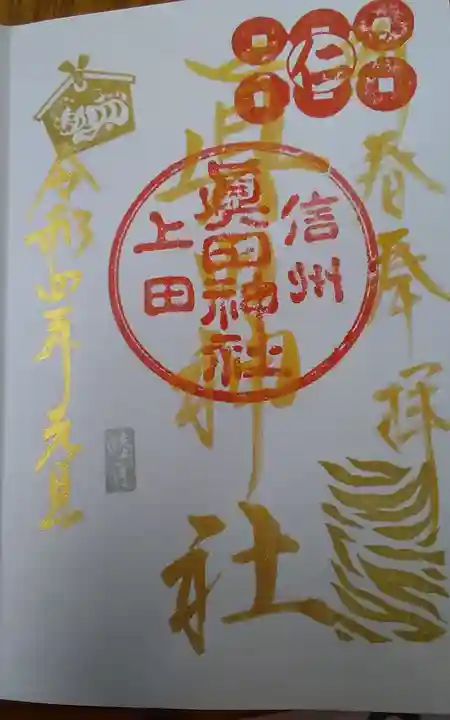 仁
春奉拝
真田神社
信州
眞田神社
上田
令和四年元旦